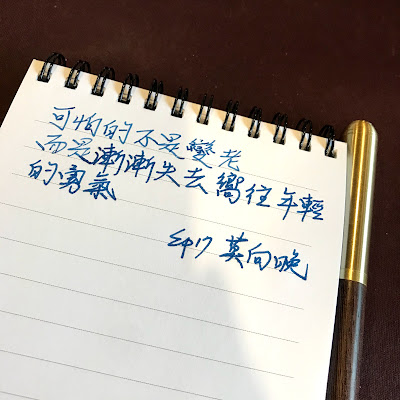 可怕的不是變老
而是漸漸失去嚮往年輕
的勇氣
莫向晚